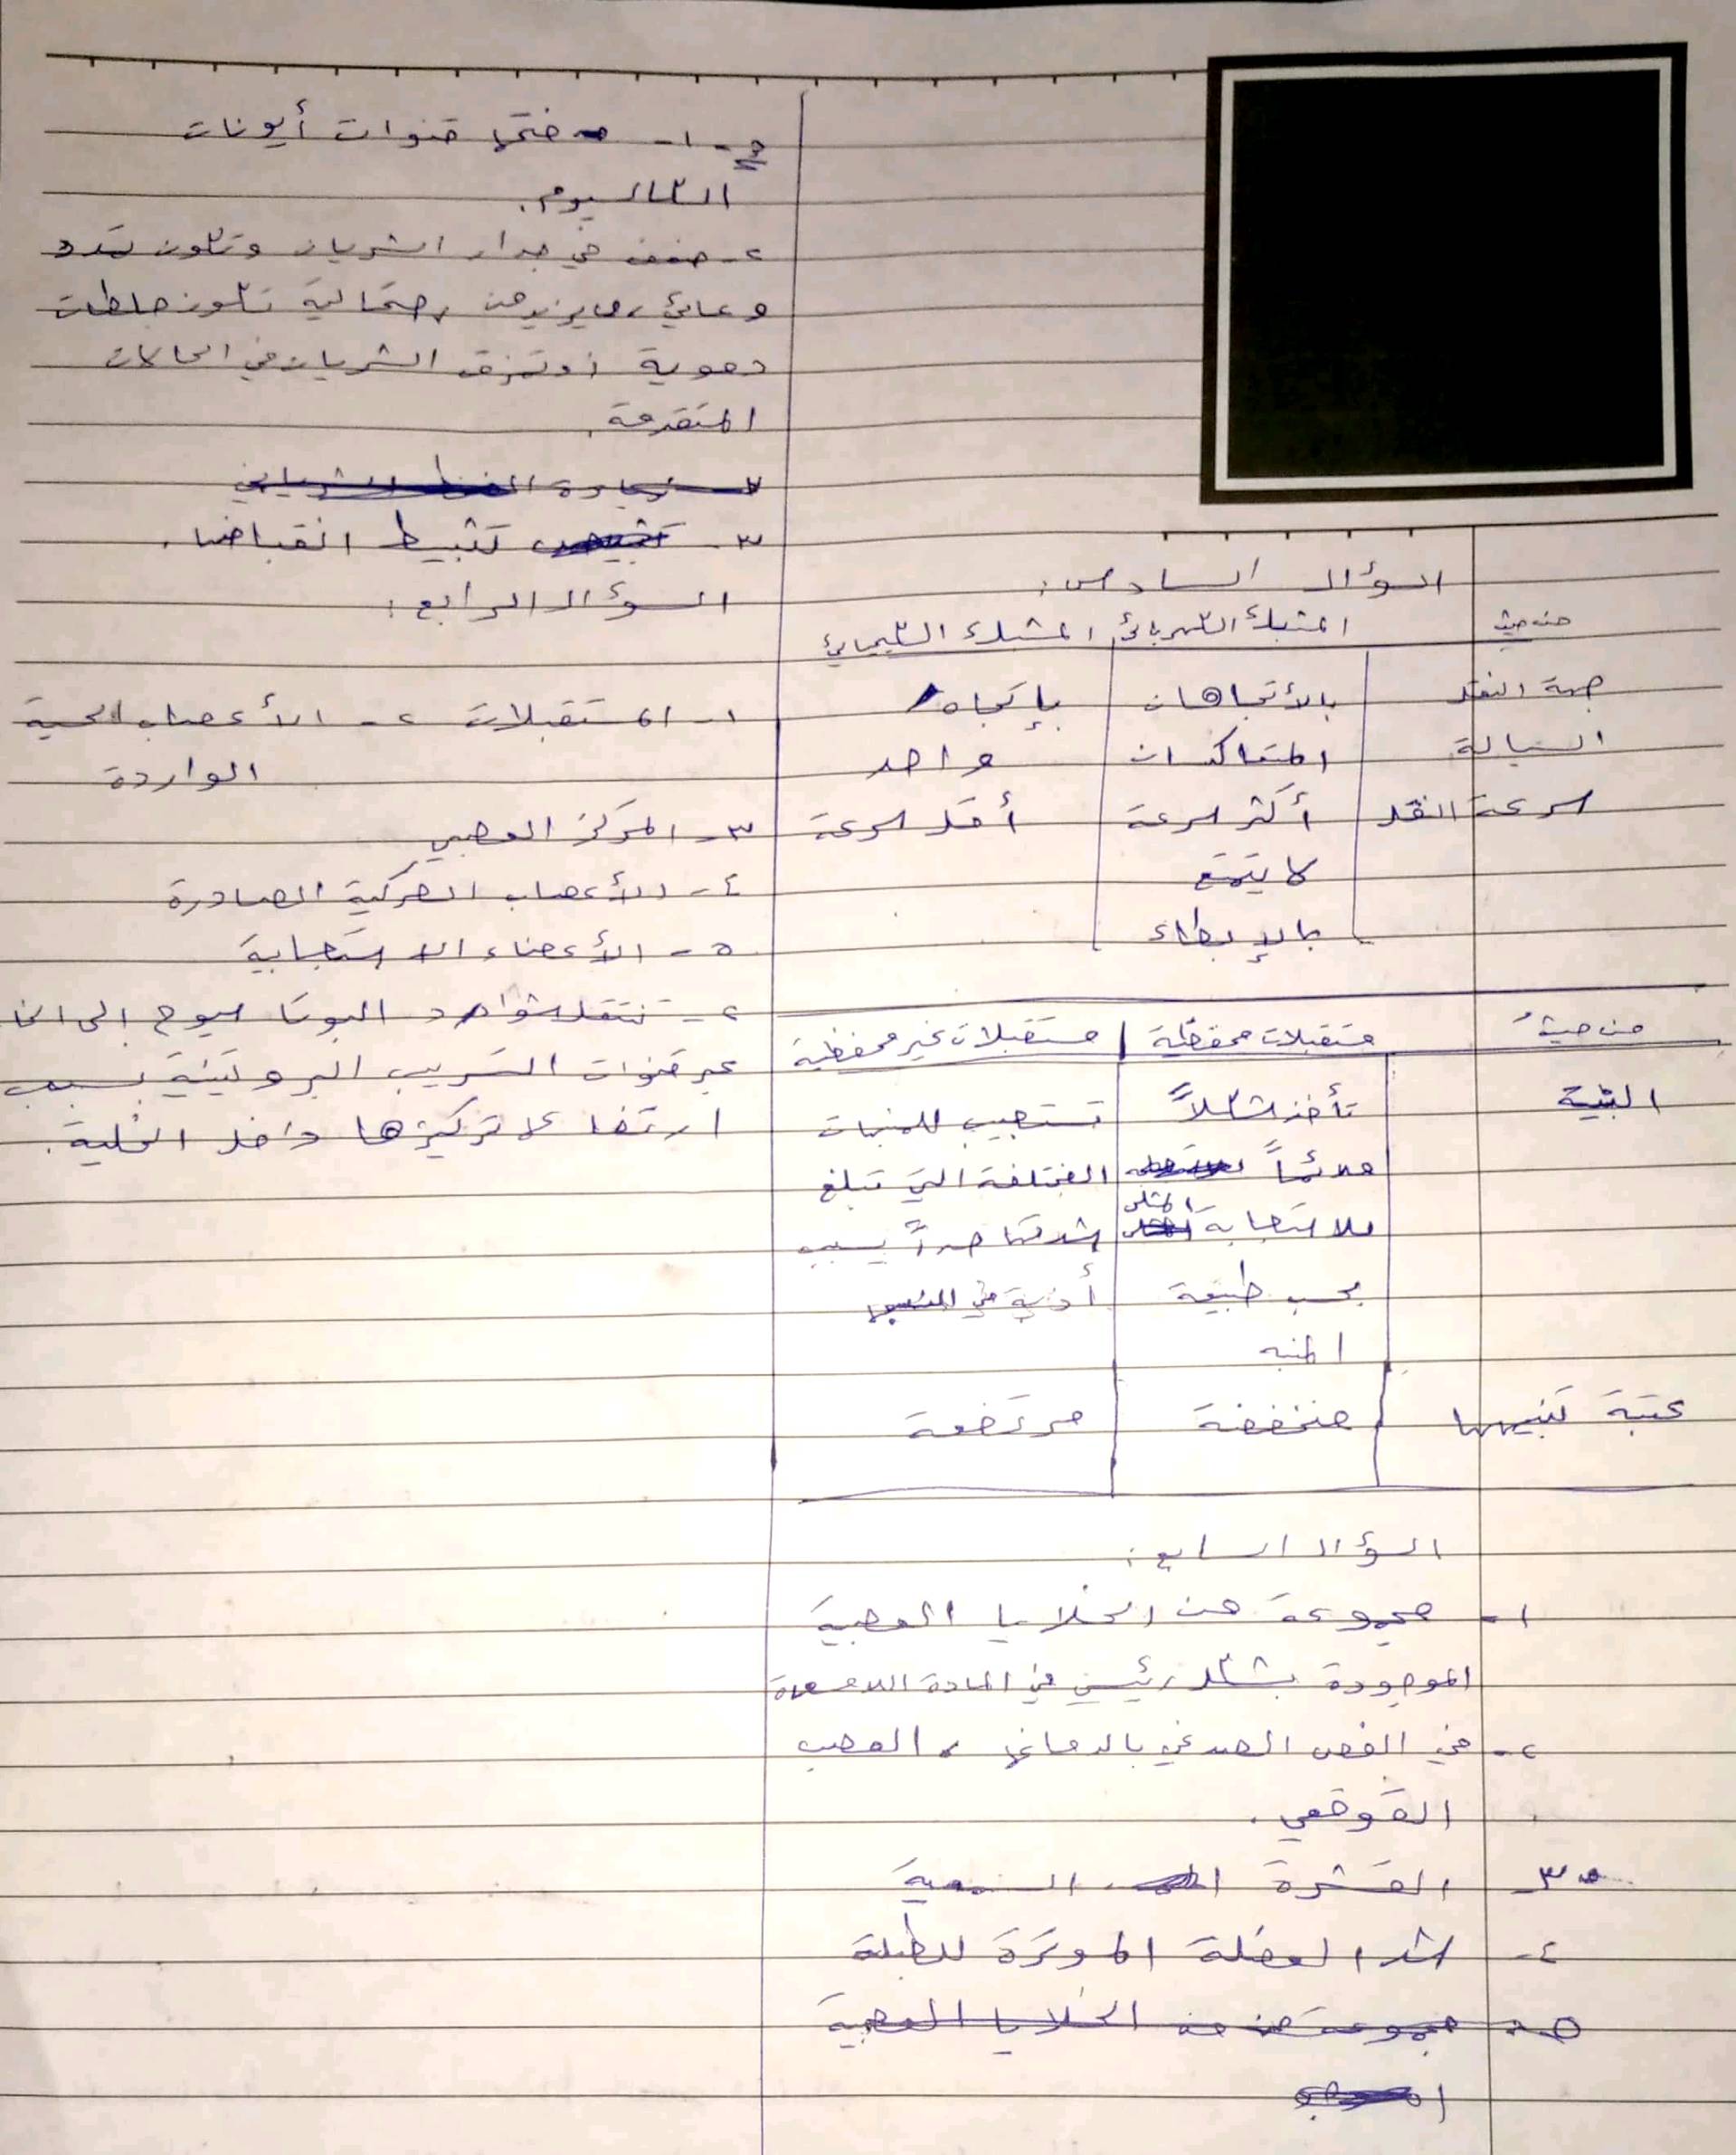 السؤال السادس:
من حيث | المشبك الكهربائي | المشبك الكيميائي
جهة النقل | بالأتجاهان | بإتجاه
السيالة | المتعاكسان | واحد
سرعة النقل | أكثر سرعة | أقل سرعة
لا يتمتع
بالإبطاء
من حيث | مستقبلات محفظية | مستقبلات غير محفظية
البنية | تأخذ شكلاً | تستجيب للمنبهات
ملائماً | المختلفة التي تبلغ
للاستجابة المثلى | شدتها حداً يسبب
بحسب طبيعة | أذية في
المنبه
عتبة تنبيهها | منخفضة | مرتفعة
السؤال السابع:
١- مجموعة من الخلايا العصبية
الموجودة بشكل رئيسي في المادة
٢- في الفص الصدغي بالدماغ، العصب
القوقعي.
٣- القشرة السمعية
٤- شد العضلة الموترة للطبلة
٥- مجموعة من الخلايا العصبية
ج- ١- فتح قنوات أيونات
الكالسيوم.
٢- ضعف في جدار الشريان وتكون تسدد
وعائي، ما يزيد من احتمالية تكون جلطات
دموية أو تمزق الشريان في الحالات
المتقدمة.
٣- تثبيط انقباضها.
السؤال الرابع:
١- المستقبلات ٢- الأعصاب الحسية
الواردة
٣- المركز العصبي
٤- الأعصاب الحركية الصادرة
٥- الأعضاء الاستجابية
٢- تنتقل شوارد البوتاسيوم إلى الخا
عبر قنوات التسريب البروتينية بسبب
ارتفاع تركيزها داخل الخلية.